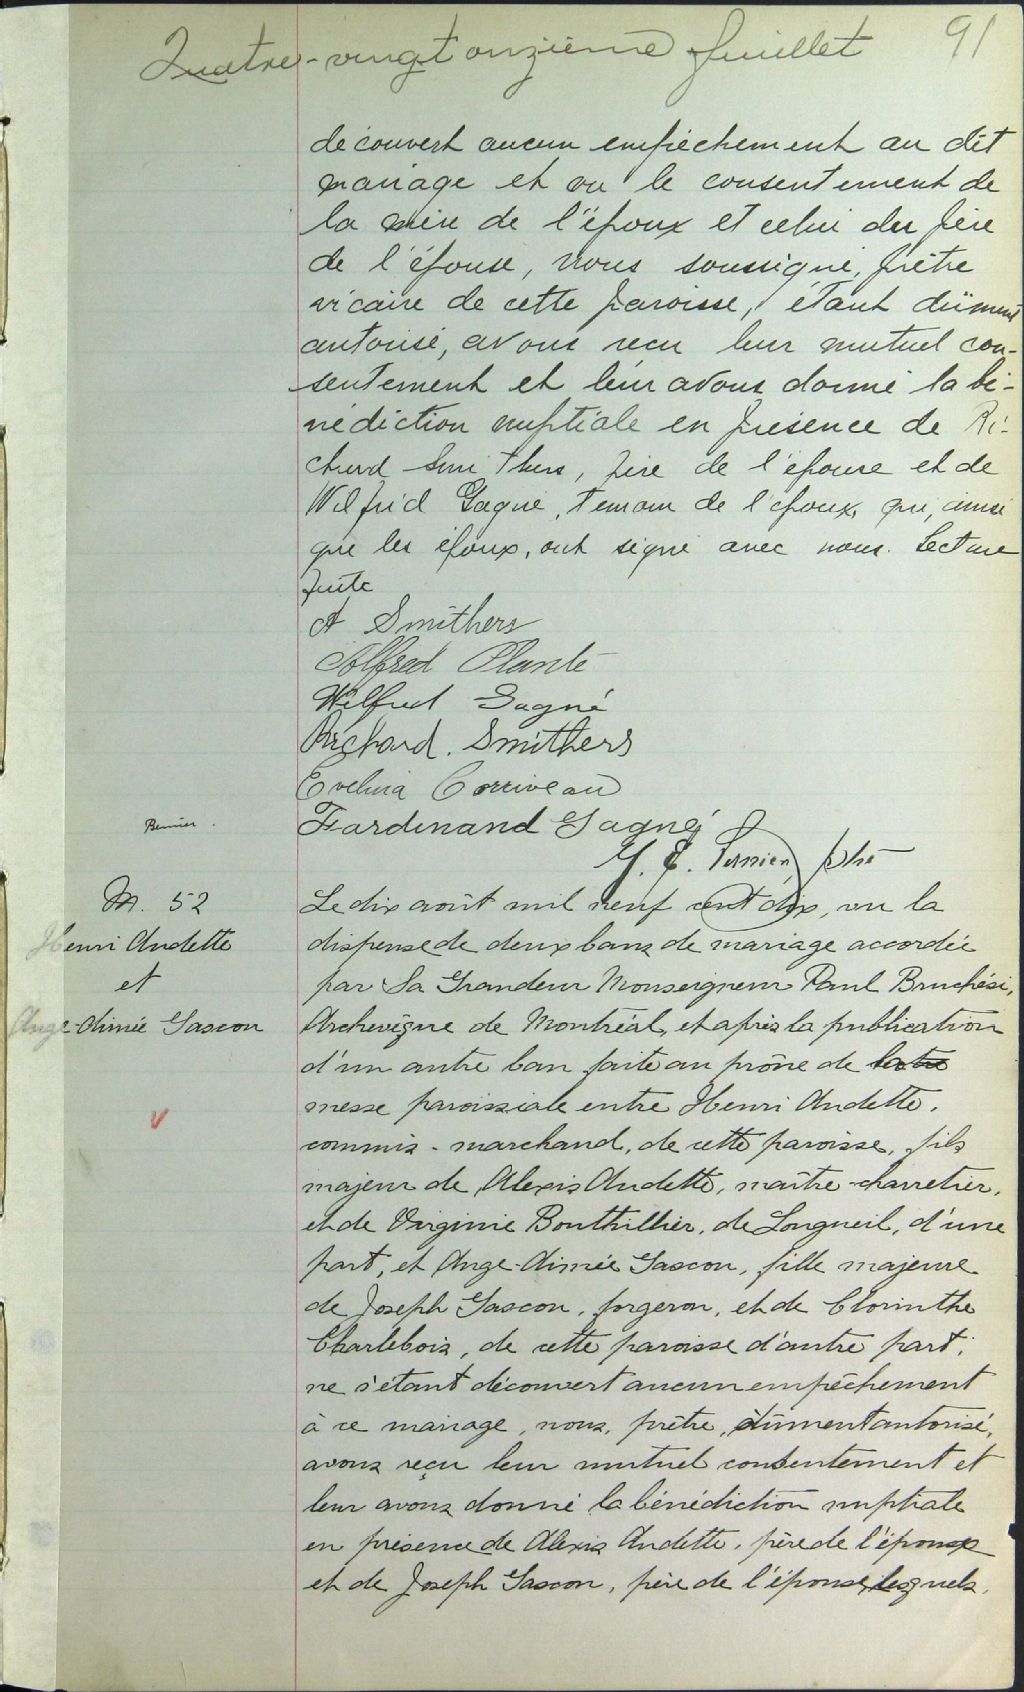 Quatre-vingt onzième feuillet 91
découvert aucun empêchement au dit
mariage et vu le consentement de
la mère de l'époux et celui du père
de l'épouse, nous soussigné, prêtre
vicaire de cette paroisse, étant dûment
autorisé, avons reçu leur mutuel con-
sentement et leur avons donné la bé-
nédiction nuptiale en présence de Ri-
chard Smithers, père de l'épouse et de
Wilfrid Gagné, témoin de l'époux, qui, ainsi
que les époux, ont signé avec nous. Lecture
faite
A Smithers
Alfred Plante
Wilfred Gagné
Richard. Smithers
Evelina Corriveau
Bernier.
Ferdinand Gagné
ptre
M. 52
Henri Audette
et
Ange-Aimée Gascon
Le dix août mil neuf cent dix, vu la
dispense de deux bans de mariage accordée
par Sa Grandeur Monseigneur Paul Bruchési,
Archevêque de Montréal, et après la publication
d'un autre ban faite au prône de
messe paroissiale entre Henri Audette,
commis-marchand, de cette paroisse, fils
majeur de Alexis Audette, maître-charretier,
et de Virginie Bouthillier, de Longueil, d'une
part, et Ange-Aimée Gascon, fille majeure
de Joseph Gascon, forgeron, et de Clorinthe
Charlebois, de cette paroisse d'autre part,
ne s'étant découvert aucun empêchement
à ce mariage, nous, prêtre, dûment autorisé,
avons reçu leur mutuel consentement et
leur avons donné la bénédiction nuptiale
en présence de Alexis Audette, père de l'époux
et de Joseph Gascon, père de l'épouse, lesquels.